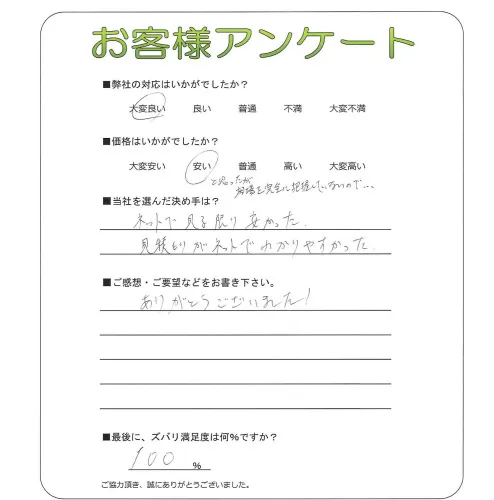 お客様アンケート
■弊社の対応はいかがでしたか？
大変良い 良い 普通 不満 大変不満
■価格はいかがでしたか？
大変安い 安い 普通 高い 大変高い
と思ったが
相場を完全に把握していないので...
■当社を選んだ決め手は？
ネットで見る限り安かった.
見積もりがネットでわかりやすかった.
■ご感想・ご要望などをお書き下さい。
ありがとうございました!
■最後に、ズバリ満足度は何%ですか？
100 %
ご協力頂き、誠にありがとうございました。